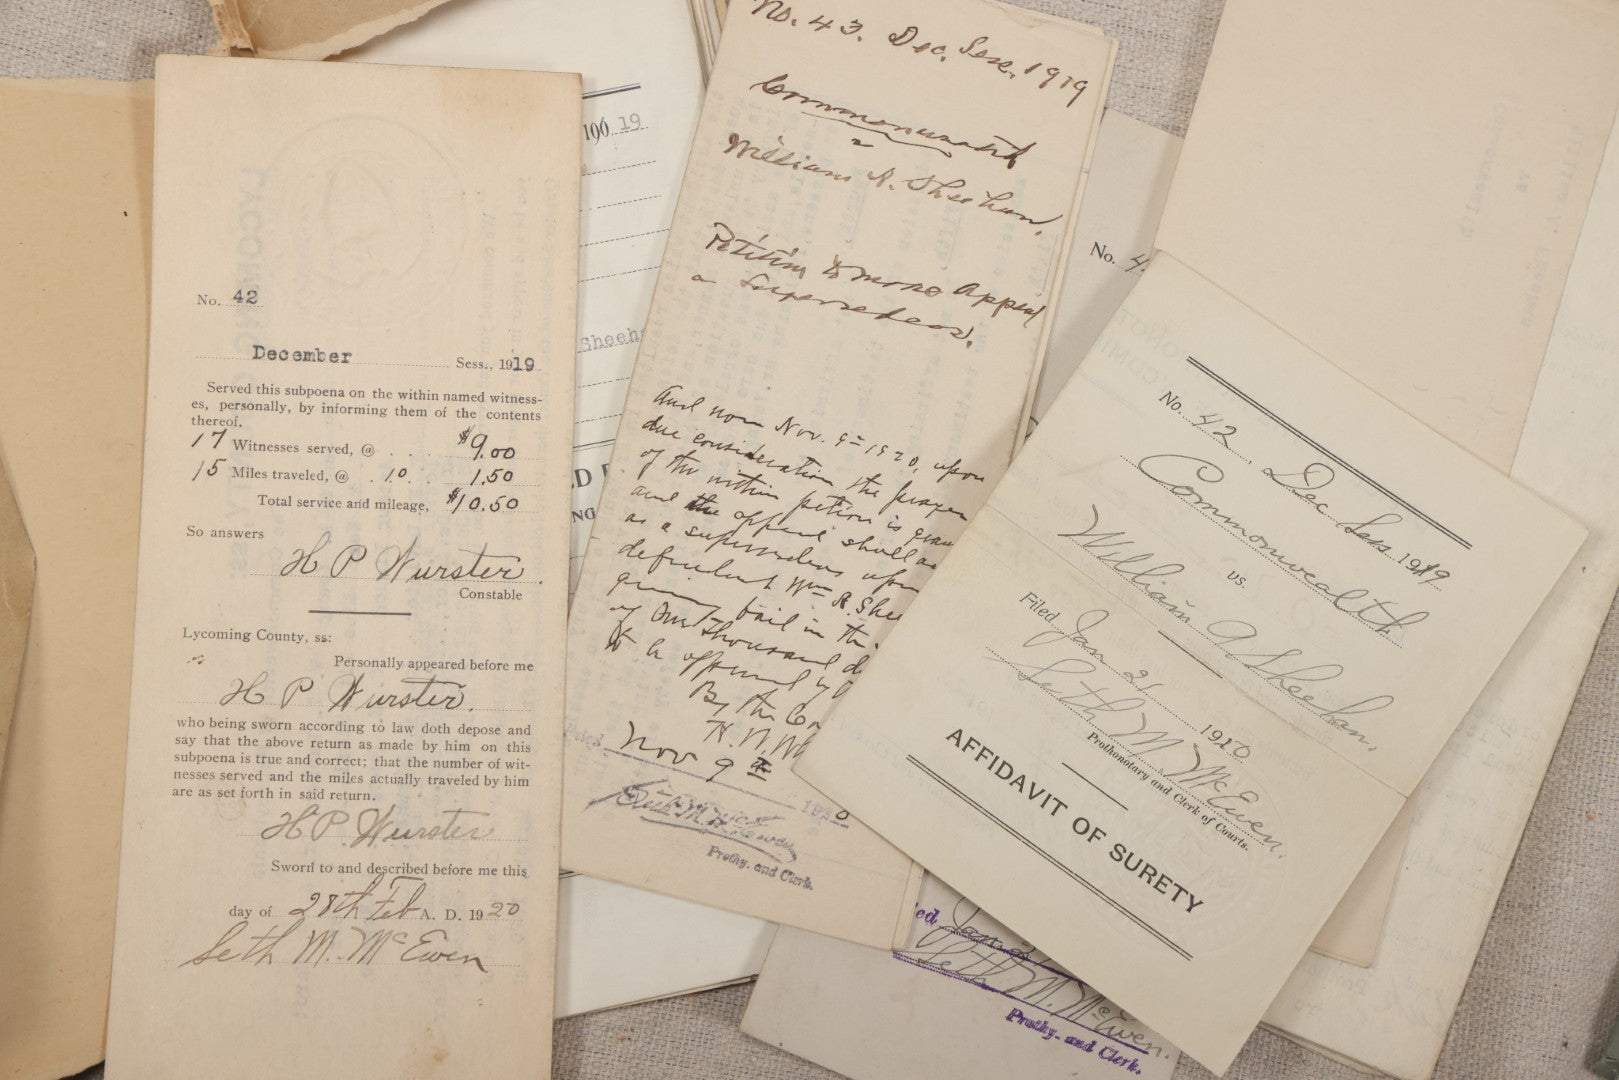 No. 42
December Sess., 1919
Served this subpoena on the within named witness-
es, personally, by informing them of the contents
thereof.
17 Witnesses served, @ . . . $9.00
15 Miles traveled, @ .10. . 1.50
Total service and mileage, $10.50
So answers
H P Wurster
Constable
Lycoming County, ss:
Personally appeared before me
H P Wurster.
who being sworn according to law doth depose and
say that the above return as made by him on this
subpoena is true and correct; that the number of wit-
nesses served and the miles actually traveled by him
are as set forth in said return.
H P Wurster
Sworn to and described before me this
day of 28th Feb A. D. 1920
Seth M. McEwen
19
Sheeha
No. 43. Dec. Sess. 1919
Commonwealth
William A. Sheehan.
Petition to
Appeal
a Supersedeas.
And now Nov. 9= 1920, upon
due consideration the prayer
of the within petition is gran
and the appeal shall ac
as a supersedeas upon
defendant Wm A. Shee
giving bail in the
of One thousand d
to be approved by
By the Co
H. N. Wh
Filed Nov 9th 1920
Prothy. and Clerk.
No. 4
No. 42, Dec Sess. 1919
Commonwealth
vs.
William A Sheehan,
Filed Jan 21 1920
Seth M. McEwen.
Prothonotary and Clerk of Courts.
AFFIDAVIT OF SURETY
led Jan 2
Seth M. McEwen.
Prothy. and Clerk.